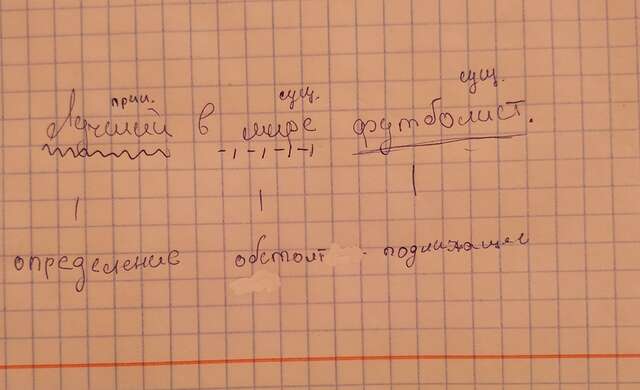 прил. сущ. сущ.
Лучший в мире футболист.
определение обстоят подлежащее